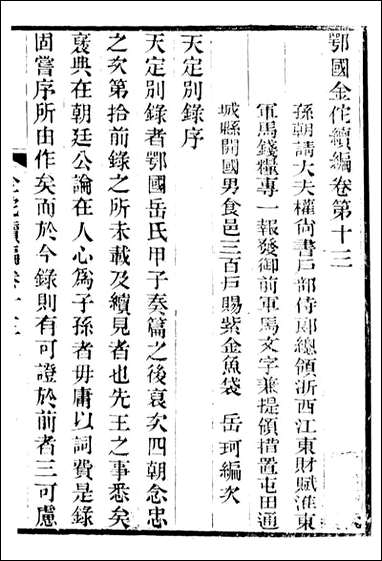 鄂國金佗續編卷第十三
孫朝請大夫權尚書戶部侍郎總領浙西江東財賦淮東
軍馬錢糧專一報發御前軍馬文字兼提領措置屯田通
城縣開國男食邑三百戶賜紫金魚袋 岳珂編次
天定別錄序
天定別錄者鄂國岳氏甲子奏篇之後裒次四朝念忠
之次第拾前錄之所未載及續見者也先王之事悉矣
襃典在朝廷公論在人心爲子孫者毋庸以詞費是錄
固嘗序所由作矣而於今錄則有可證於前者三可慮
金佗續編卷十三